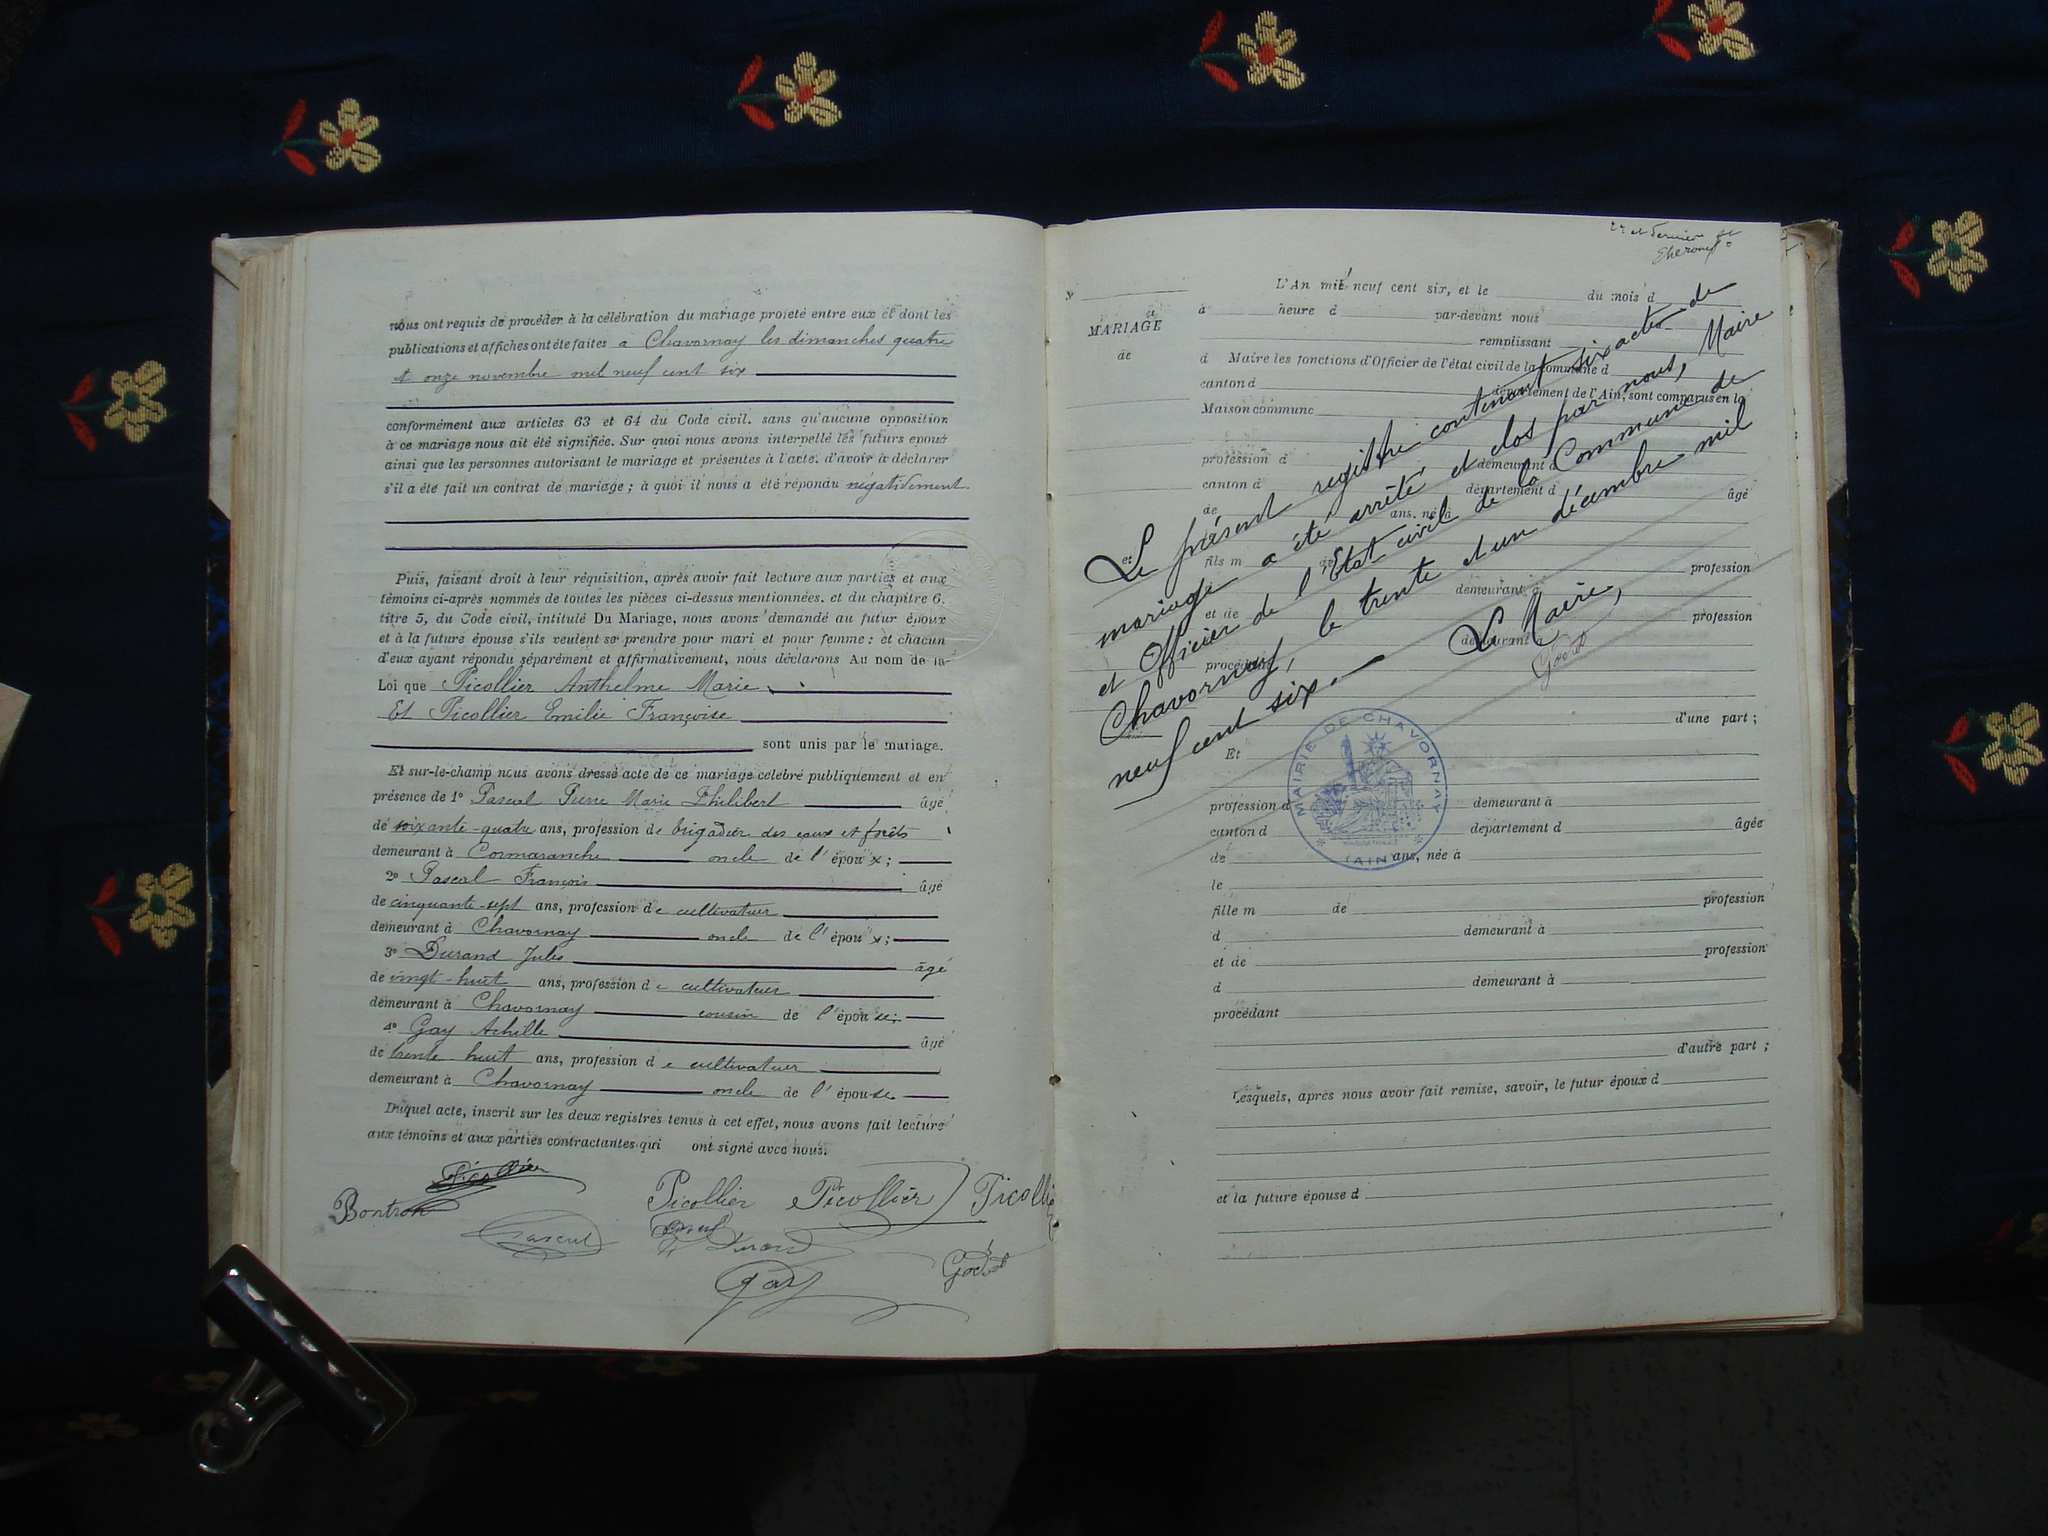 nous ont requis de procéder à la célébration du mariage projeté entre eux et dont les
publications et affiches ont été faites à Chavornay les dimanches quatre
et onze novembre mil neuf cent six
conformément aux articles 63 et 64 du Code civil. sans qu'aucune opposition
à ce mariage nous ait été signifiée. Sur quoi nous avons interpellé les futurs epoux
ainsi que les personnes autorisant le mariage et présentes à l'acte. d'avoir à déclarer
s'il a été fait un contrat de mariage ; à quoi il nous a été répondu négativement
Puis, faisant droit à leur réquisition, après avoir fait lecture aux parties et aux
témoins ci-après nommés de toutes les pièces ci-dessus mentionnées. et du chapitre 6.
titre 5, du Code civil, intitulé Du Mariage, nous avons demandé au futur époux
et à la future épouse s'ils veulent se prendre pour mari et pour femme : et chacun
d'eux ayant répondu séparément et affirmativement, nous déclarons Au nom de la
Loi que Picollier Anthelme Marie
Et Picollier Emilie Françoise
sont unis par le mariage.
Et sur-le-champ nous avons dressé acte de ce mariage celebré publiquement et en
présence de 1° Pascal Pierre Marie Philibert âgé
de soixante-quatre ans, profession de brigadier des eaux et forêts
demeurant à Cormaranche oncle de l'époux ;
2° Pascal François âgé
de cinquante-sept ans, profession de cultivateur
demeurant à Chavornay oncle de l'époux ;
3° Durand Jules âgé
de vingt-huit ans, profession de cultivateur
demeurant à Chavornay cousin de l'épouse ;
4° Gay Achille âgé
de trente-huit ans, profession de cultivateur
demeurant à Chavornay oncle de l'épouse
Duquel acte, inscrit sur les deux registres tenus à cet effet, nous avons fait lecture
aux témoins et aux parties contractantes qui ont signé avec nous.
Picollier
Bontron
Picollier Picollier Picolli
Pascal
Pascal
Durand
Gay
Godet
2e et dernier
L'An mil neuf cent six, et le du mois d
MARIAGE
de
à heure d par-devant nous
remplissant
d Maire les fonctions d'Officier de l'état civil de la commune d
canton d département de l'Ain, sont comparus en la
Maison commune
profession d demeurant à
canton d département d âgé
de ans, né à
et
fils m de profession
demeurant à
et de profession
demeurant à
procédant
Le présent registre contenant six actes de
mariage a été arrêté et clos par nous, Maire
et Officier de l'Etat civil de la Commune de
Chavornay, le trente et un décembre mil
neuf cent six.
Le Maire,
Godet
MAIRIE DE CHAVORNAY
(AIN)
d'une part ;
Et
profession d demeurant à
canton d département d âgée
de ans, née à
le
fille m de profession
d demeurant à
et de profession
d demeurant à
procédant
d'autre part ;
Lesquels, après nous avoir fait remise, savoir, le futur époux d
et la future épouse d